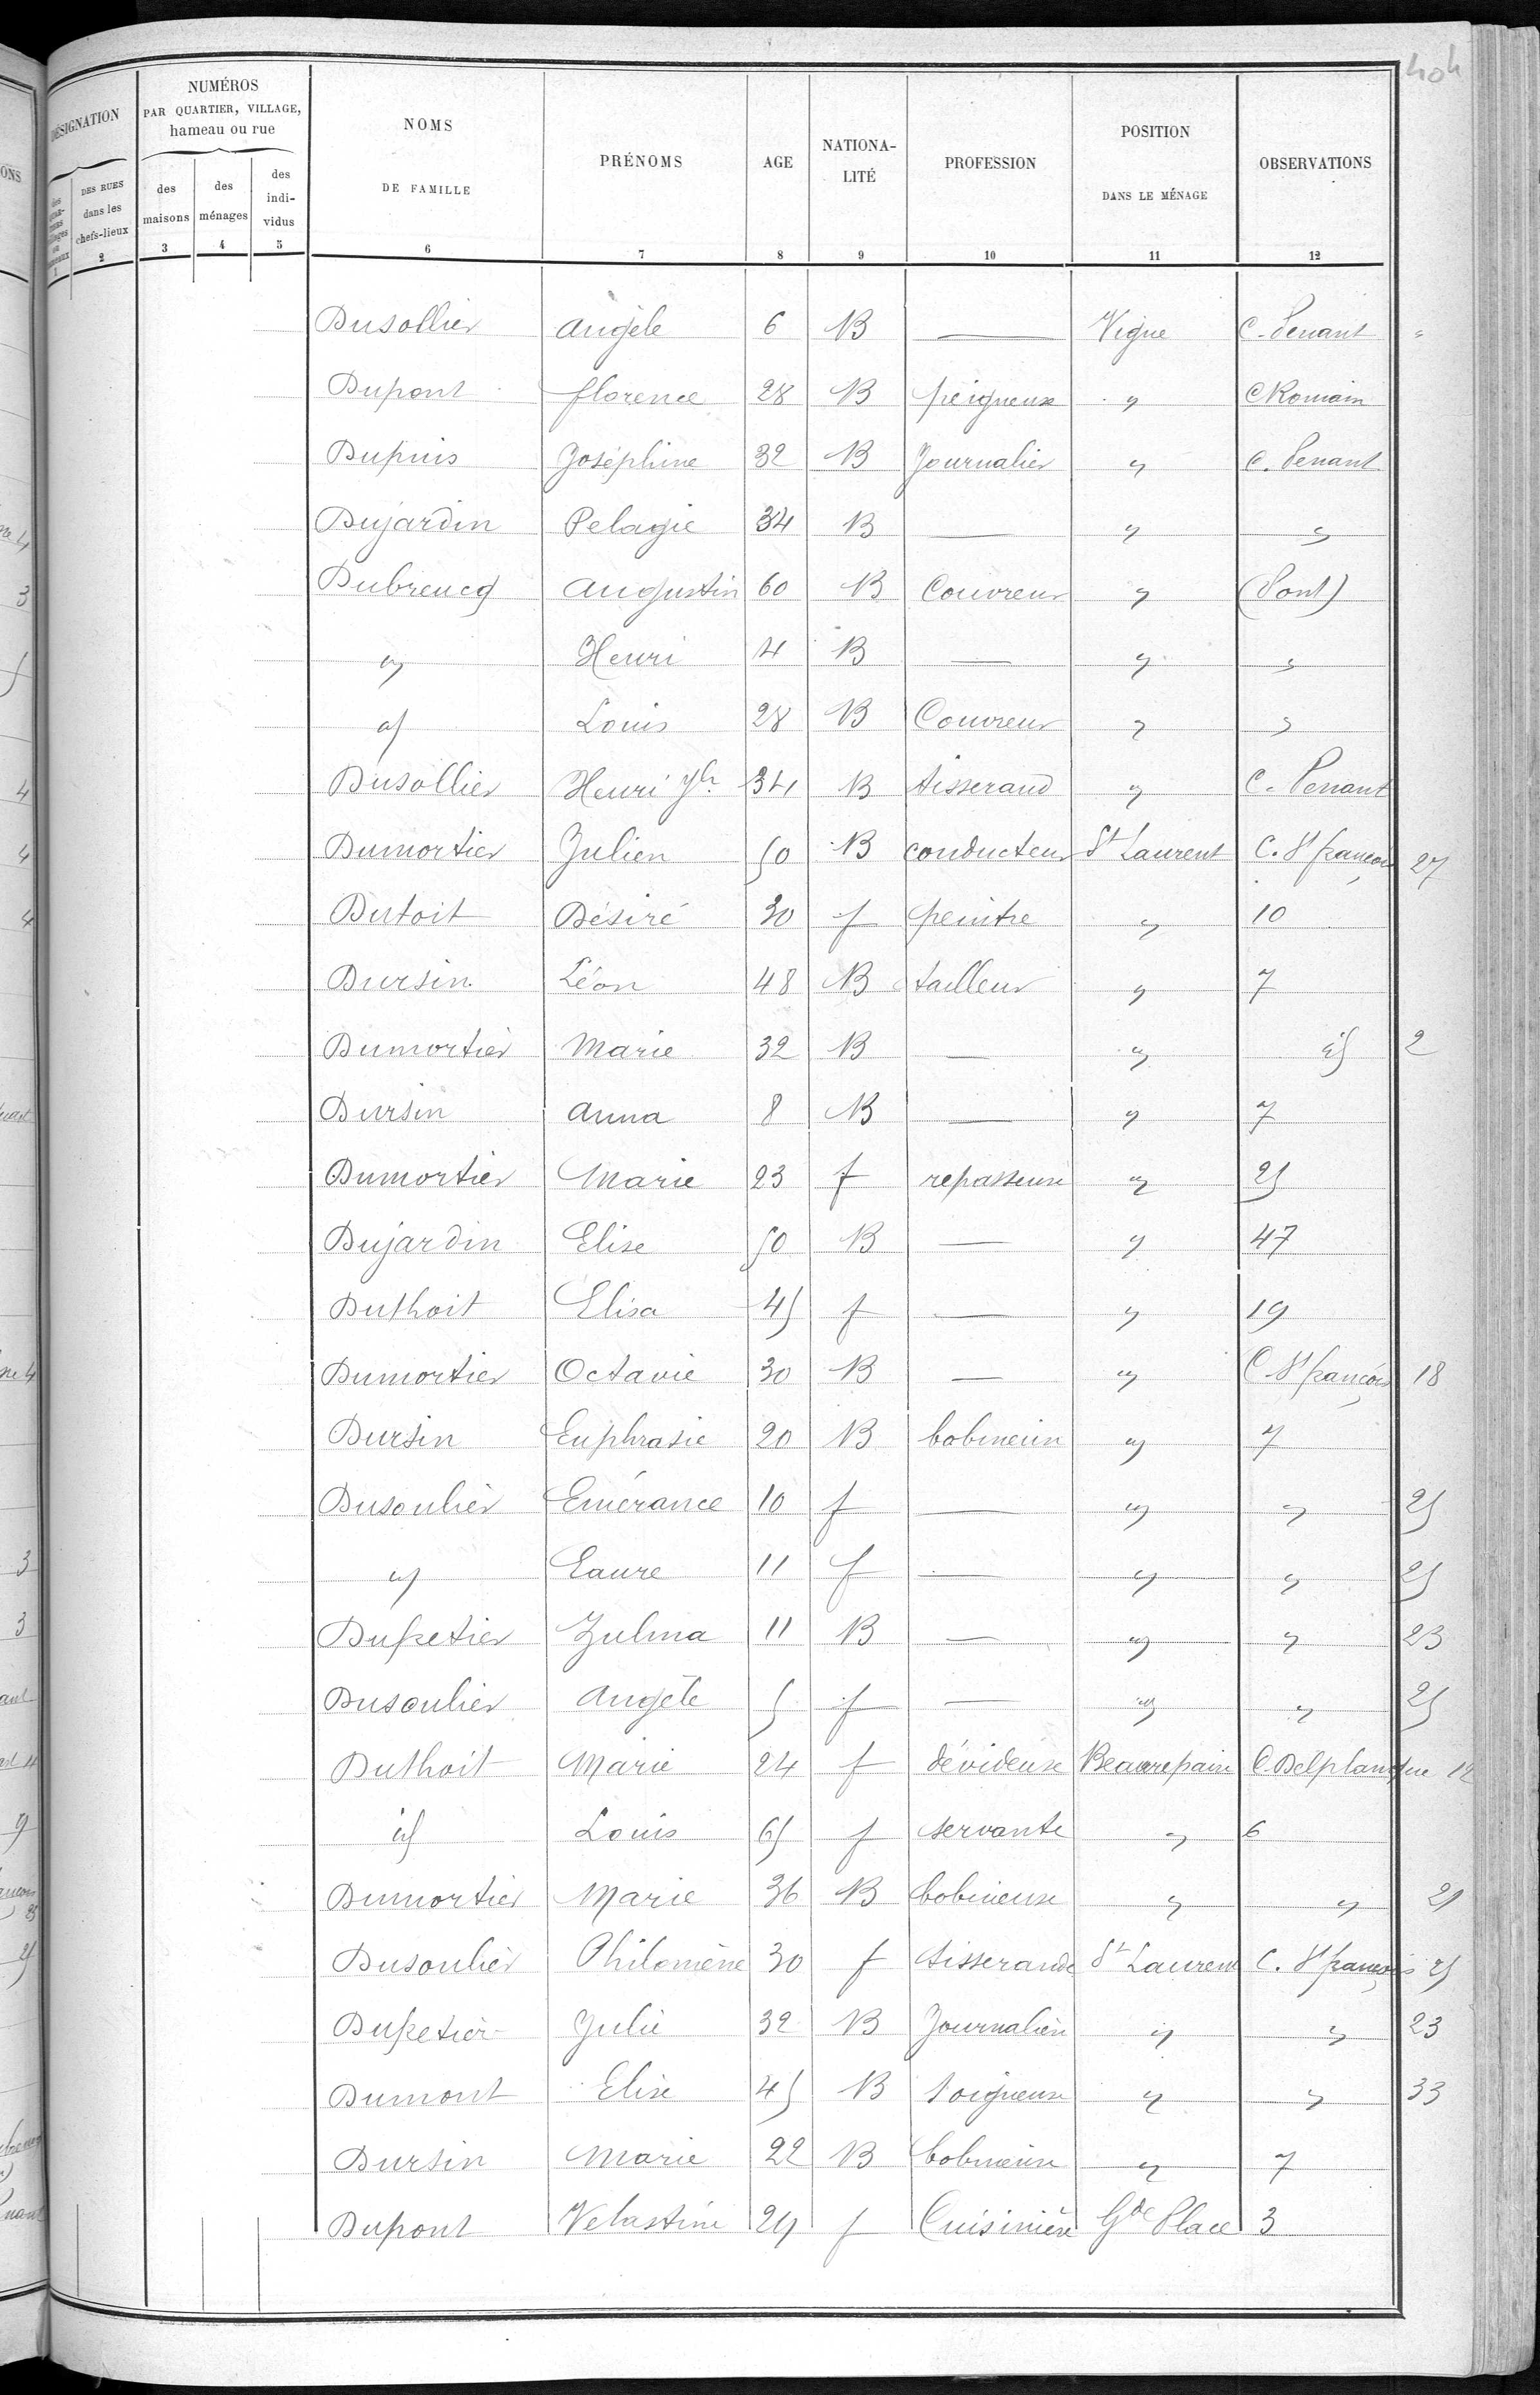 404
DÉSIGNATION
NUMÉROS
PAR QUARTIER, VILLAGE,
hameau ou rue
NOMS
DE FAMILLE
PRÉNOMS
AGE
NATIONA-
LITÉ
PROFESSION
POSITION
DANS LE MÉNAGE
OBSERVATIONS
DES RUES
dans les
chefs-lieux
des
maisons
des
ménages
des
indi-
vidus
1 2 3 4 5 6 7 8 9 10 11 12
Dusollier Angèle 6 B — Vigne C. Penant "
Dupont florence 28 B peigneuse " C Romain
Dupuis Joséphine 32 B Journalier " C. Penant
Dujardin Pelagie 34 B — " "
Dubreucq Augustin 60 B Couvreur " (Pont)
" Henri 4 B — " "
" Louis 28 B Couvreur " "
Dusollier Henri Jh 34 B tisserand " C. Penant
Dumortier Julien 50 B conducteur St Laurent C. St françois 27
Dutoit Désiré 30 f peintre " 10
Dursin Léon 48 B tailleur " 7
Dumortier Marie 32 B — " id 2
Dursin Anna 8 B — " 7
Dumortier Marie 23 f repasseuse " 25
Dujardin Elise 50 B — " 47
Duthoit Elisa 45 f — " 19
Dumortier Octavie 30 B — " C St françois 18
Dursin Euphrasie 20 B bobineuse " 7
Dusoulier Emérance 10 f — " " 25
" Laure 11 f — " " 25
Dupretier Zulma 11 B — " " 23
Dusoulier Angèle 5 f — " " 25
Duthoit Marie 24 f dévideuse Beaurepaire C. Delplanque 12
id Louis 65 f servante " 6
Dumortier Marie 36 B bobineuse " " 21
Dusoulier Philomène 30 f tisserande St Laurent C. St françois 25
Dupretier Julie 32 B Journalière " " 23
Dumont Elise 45 B Soigneuse " " 33
Dursin Marie 22 B bobineuse " 7
Dupont Velastine 24 f Cuisinière Gde Place 3